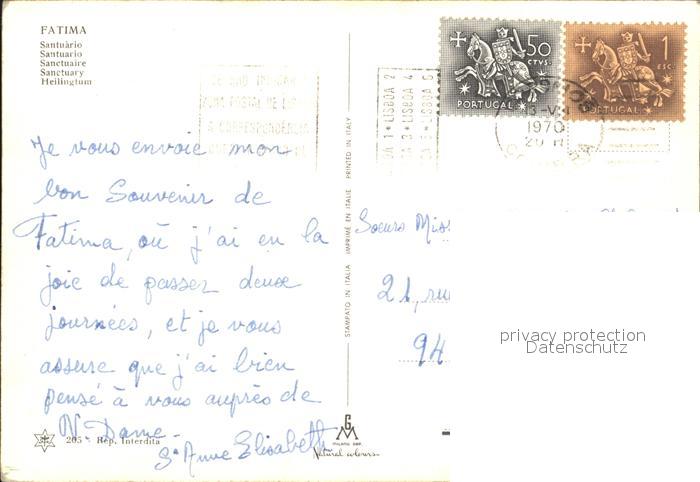 FATIMA
Santuàrio
Santuario
Sanctuaire
Sanctuary
Heiligtum
Je vous envoie mon
bon Souvenir de
Fatima, où j'ai eu la
joie de passer deux
journées, et je vous
assure que j'ai bien
pensé à vous auprès de
N. Dame.
Sr Anne Elisabeth
205 - Rep. Interdita
STAMPATO IN ITALIA IMPRIMÉ EN ITALIE PRINTED IN ITALY
MILANO
Natural colours
50
CTVS.
PORTUGAL
1
ESC
PORTUGAL
LISBOA 2
1 * LISBOA
LISBOA 4
3 * LISBOA
LISBOA
1970
20 H
Soeurs
21, rue
94
privacy protection
Datenschutz